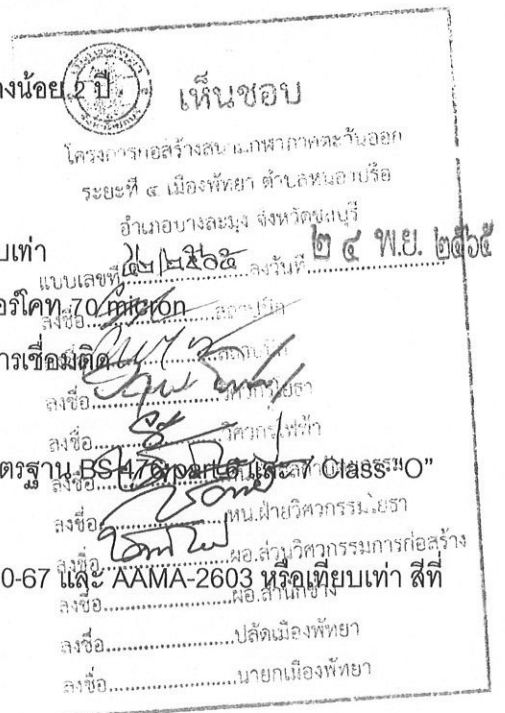 างน้อย 2 ปี
เห็นชอบ
โครงการก่อสร้างสนามกีฬาภาคตะวันออก
ระยะที่ ๔ เมืองพัทยา ตำบลหนองปรือ
อำเภอบางละมุง จังหวัดชลบุรี
บเท่า
แบบเลขที่ ๔๒/๒๕๖๕ ลงวันที่ ๒ ๔ พ.ย. ๒๕๖๕
อร์โคท 70 micron
ลงชื่อ.....สถาปนิก
ารเชื่อมติด
ลงชื่อ.....วิศวกรโยธา
ลงชื่อ.....วิศวกรไฟฟ้า
ตรฐาน BS 476 part 6 และ 7 Class "O"
ลงชื่อ.....หน.ฝ่ายวิศวกรรมโยธา
ลงชื่อ.....ผอ.ส่วนวิศวกรรมการก่อสร้าง
0-67 และ AAMA-2603 หรือเทียบเท่า สีที่
ลงชื่อ.....ผอ.สำนักช่าง
ลงชื่อ.....ปลัดเมืองพัทยา
ลงชื่อ.....นายกเมืองพัทยา